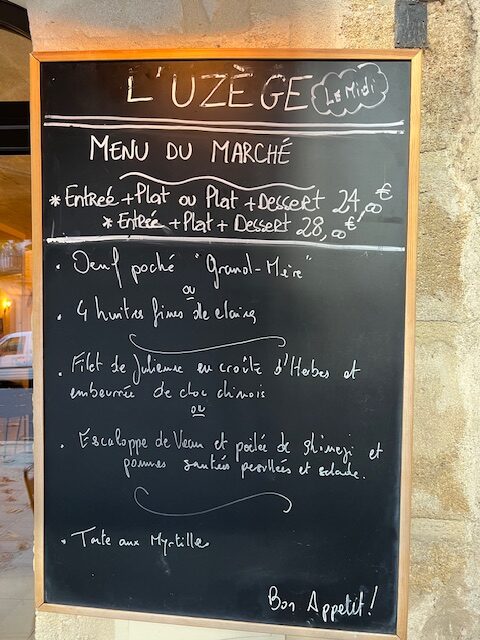 L'UZÈGE Le Midi
MENU DU MARCHÉ
* Entreé + Plat ou Plat + Dessert 24,00€
* Entrée + Plat + Dessert 28,00€
. Oeuf poché "Grand-Mère"
ou
. 4 huitres fines de claires
. Filet de Julienne en croûte d'Herbes et
embeurrée de choc chinois
ou
. Escaloppe de Veau et poêlée de shimeji et
pommes sautées persillées et salade.
. Tarte aux Myrtilles
Bon Appetit!